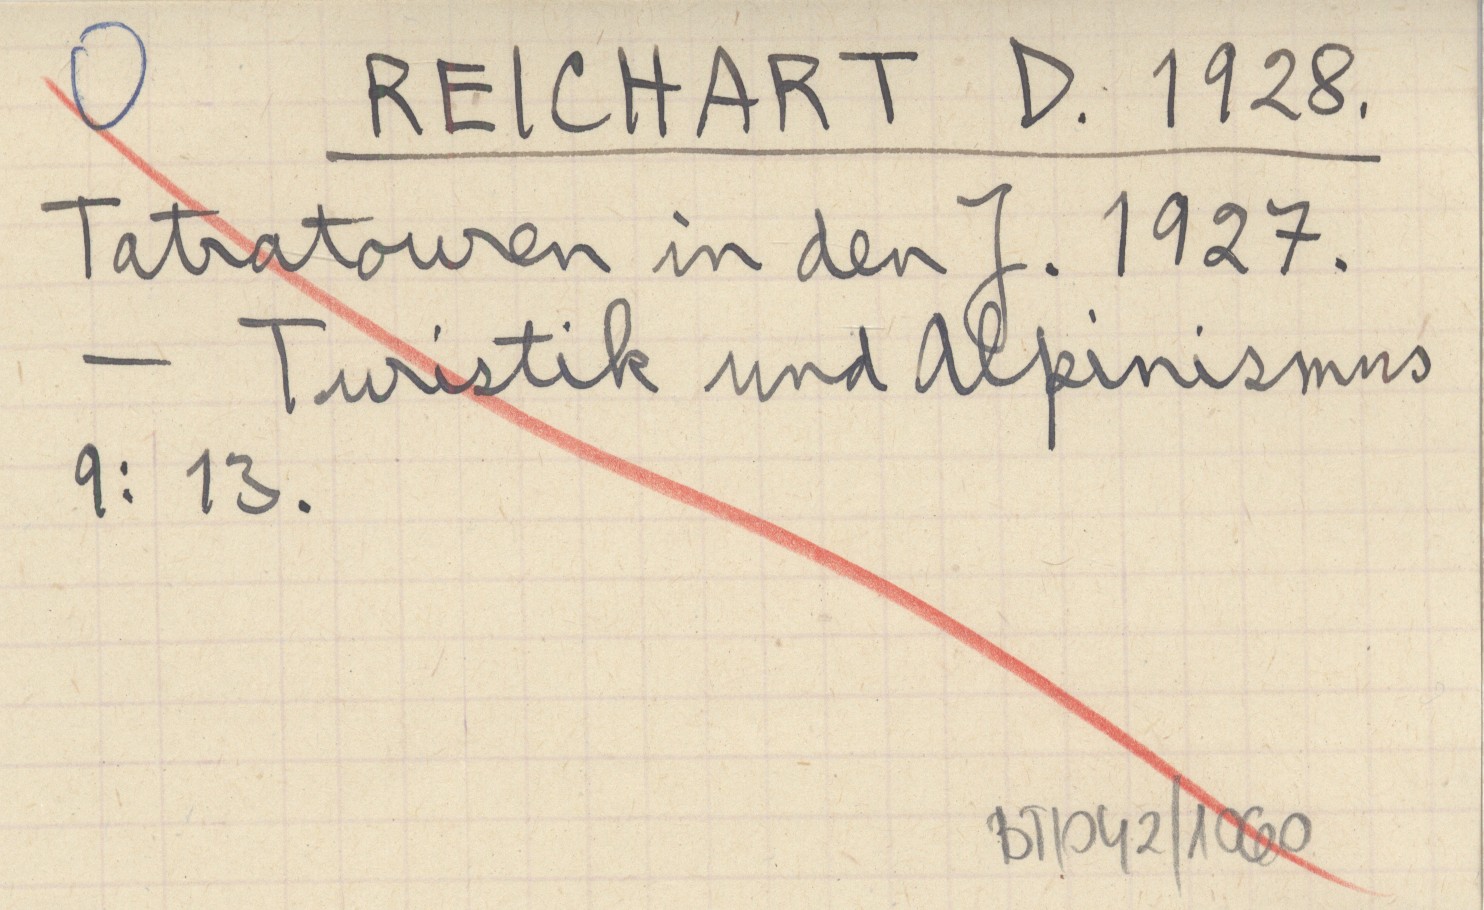 O
REICHART D. 1928.
Tatratouren in den J. 1927.
— Turistik und Alpinismus
9: 13.
BT/042/1060